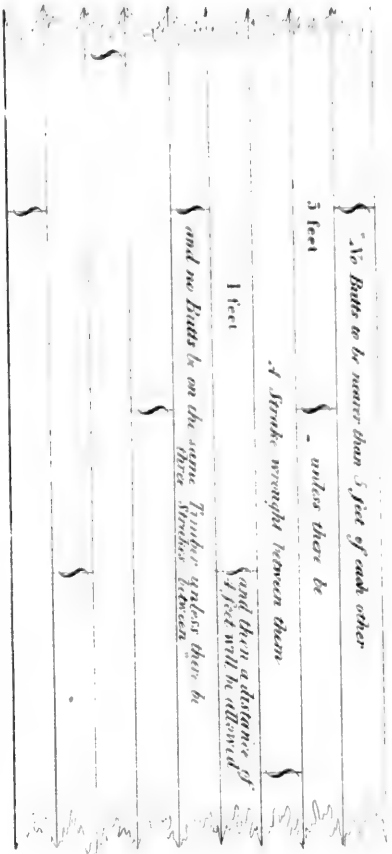 "No Butts to be nearer than 5 feet of each other
5 feet
unless there be
A Strake wrought between them
4 feet
and then a distance of
4 feet will be allowed
and no Butts be on the same Timber unless there be
three Strakes between"